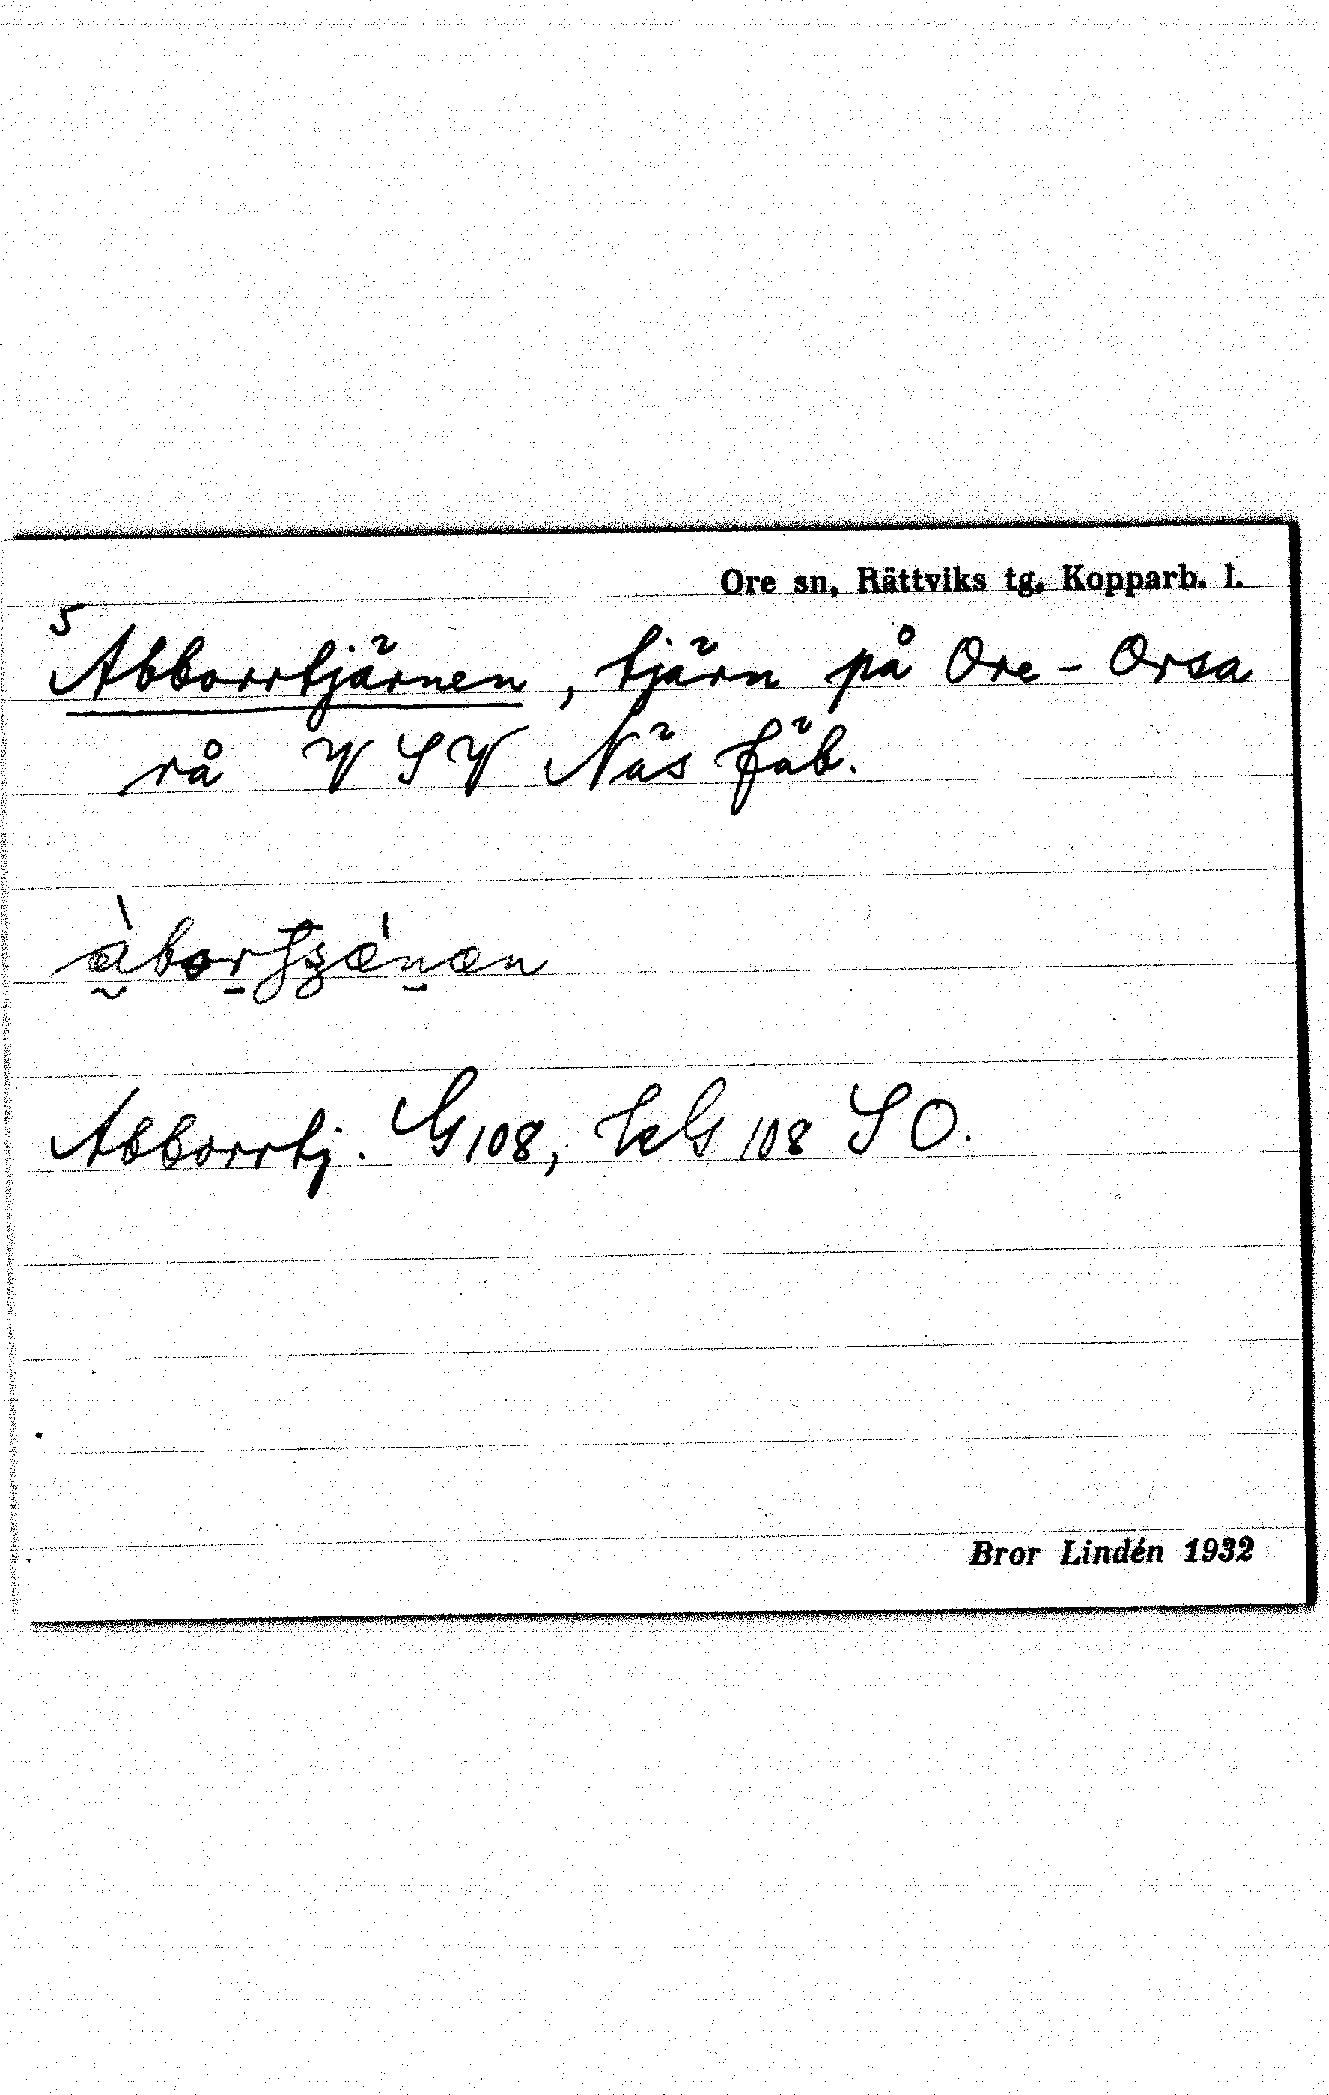 Ore sn, Rättviks tg, Kopparb. l.
5
Abborrtjärnen, tjärn på Ore - Orsa
rå V S V Näs fäb.
Abborrtj. G 108, G 108 S O.
Bror Lindén 1932